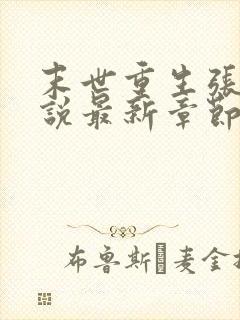 末世重生張
說最新章節
布魯斯 麦金